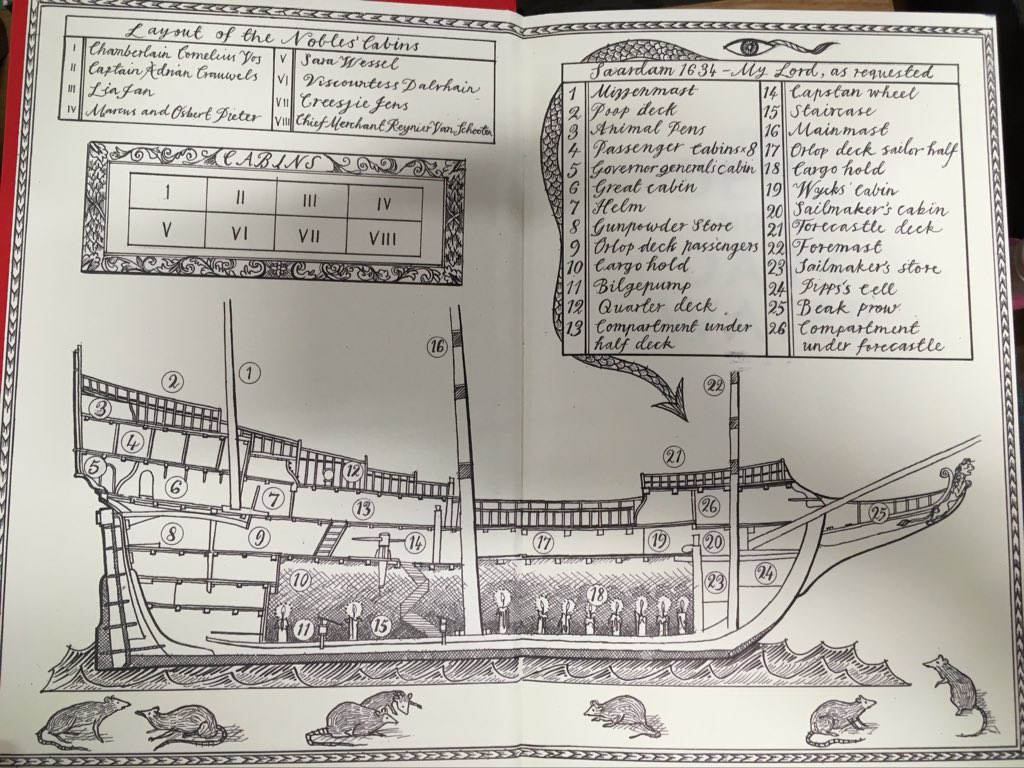 Layout of the Nobles' Cabins
I Chamberlain Cornelius Vos
II Captain Adrian Crauwels
III Lia Jan
IV Marcus and Osbert Pieter
V Sara Wessel
VI Viscountess Dalvhain
VII Creesjie Jens
VIII Chief Merchant Reynier Van Schooten
CABINS
I II III IV
V VI VII VIII
Saardam 1634 - My Lord, as requested
1 Mizzenmast
2 Poop deck
3 Animal Pens
4 Passenger cabins x 8
5 Governor general's cabin
6 Great cabin
7 Helm
8 Gunpowder Store
9 Orlop deck passengers
10 Cargo hold
11 Bilgepump
12 Quarter deck
13 Compartment under
half deck
14 Capstan wheel
15 Staircase
16 Mainmast
17 Orlop deck sailor half
18 Cargo hold
19 Wycks' cabin
20 Sailmaker's cabin
21 Forecastle deck
22 Foremast
23 Sailmaker's store
24 Pipps's cell
25 Beak prow
26 Compartment
under forecastle
1
2
3
4
5
6
7
8
9
10
11
12
13
14
15
16
17
18
19
20
21
22
23
24
25
26